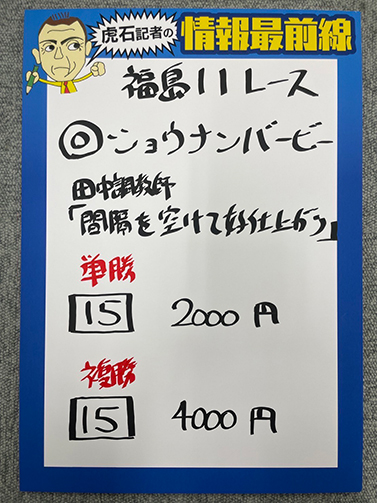 虎石記者の
情報最前線
福島11レース
◎ショウナンバービー
田中調教師
「間隔を空けて好仕上がり」
単勝
15 2000円
複勝
15 4000円